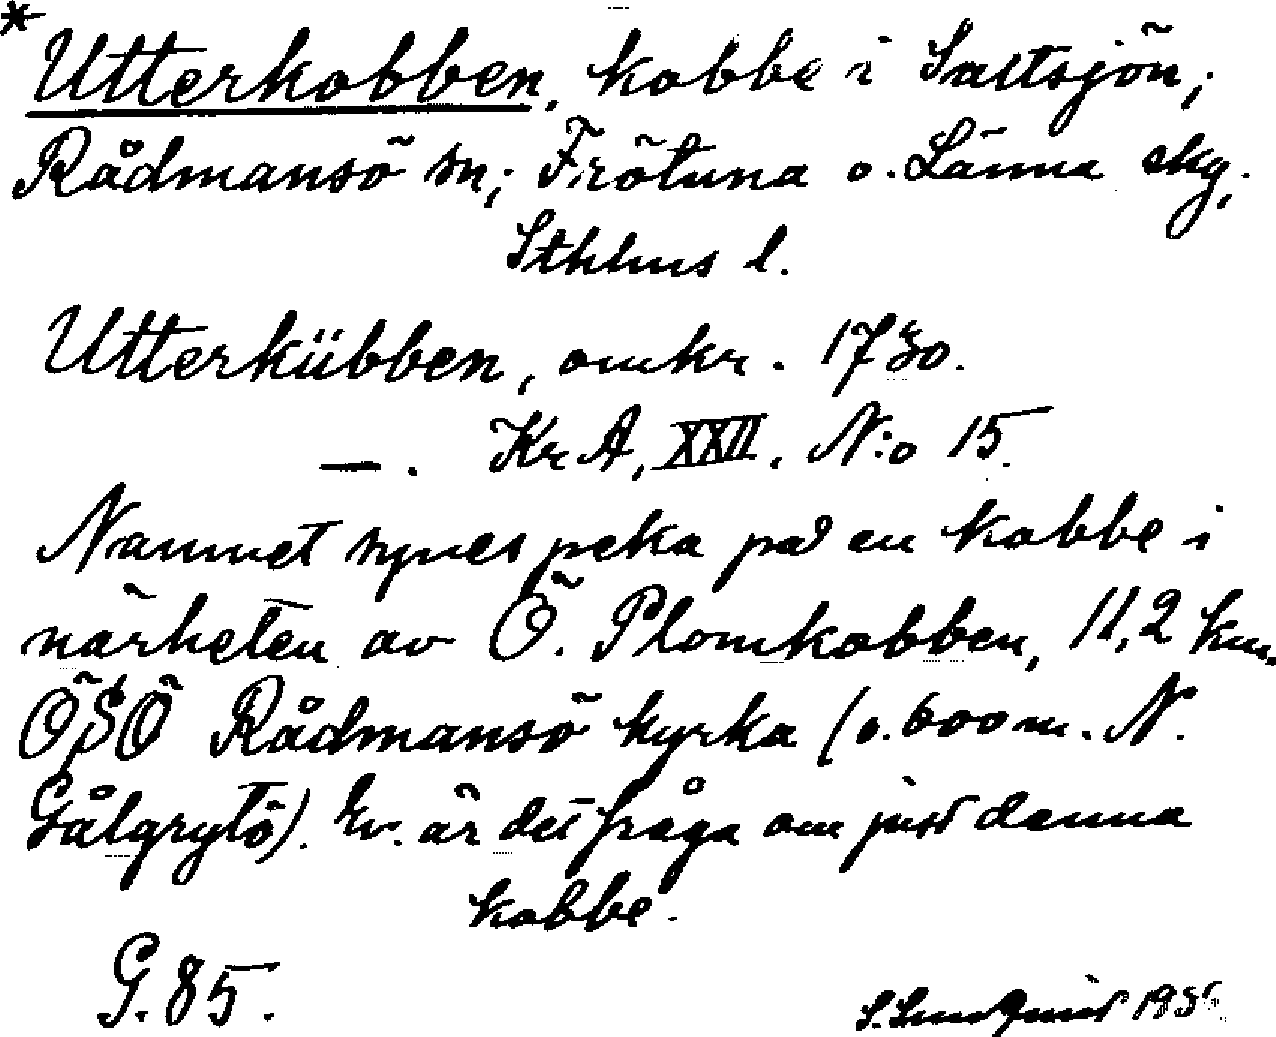 *Utterkobben, kobbe i Saltsjön;
Rådmansö sn; Frötuna o. Länna skg,
Sthlms l.
Utterkübben, omkr. 1730.
—. KrA, XXII, N:o 15.
Namnet synes peka på en kobbe i
närheten av Ö. Plomkobben, 11,2 km.
ÖSÖ Rådmansö kyrka (o. 600 m. N.
Gålgrytö). Ev. är det fråga om just denna
kobbe.
G. 85.